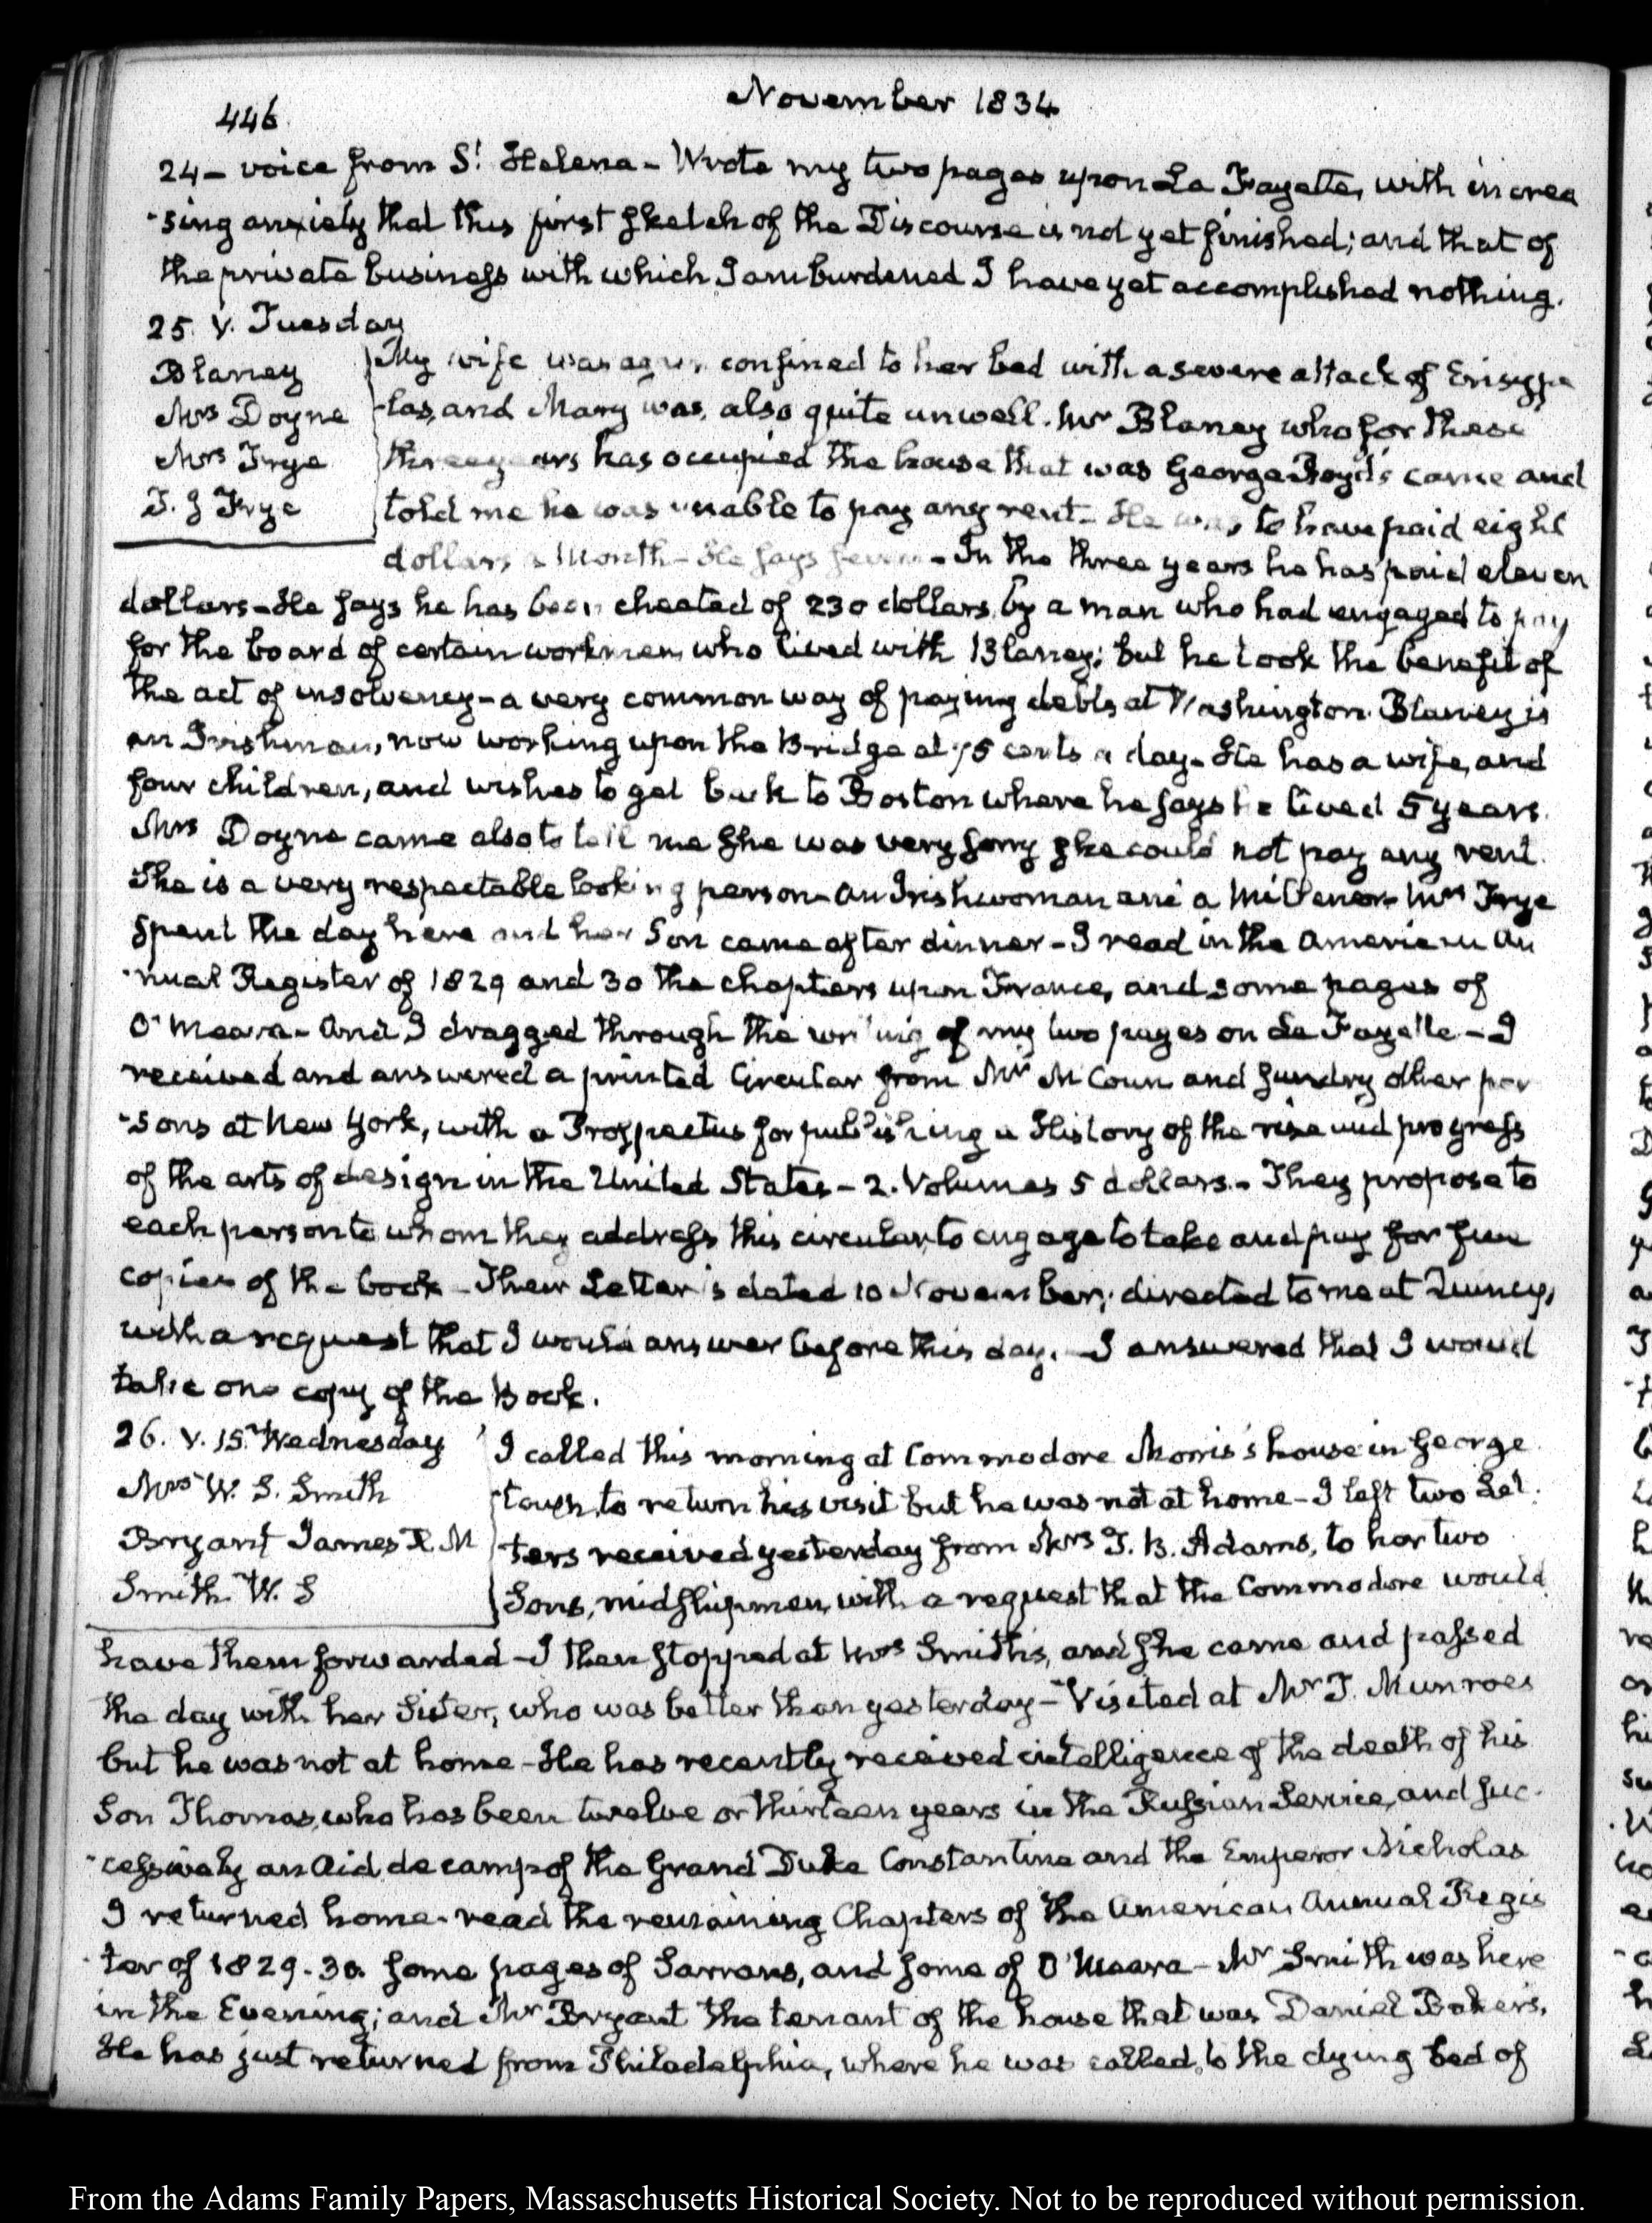 446
November 1834
24 – voice from St Helena – Wrote my two pages upon La Fayette, with increa
-sing anxiety that this first sketch of the Discourse is not yet finished; and that of
the private business with which I am burdened I have yet accomplished nothing.
25. V. Tuesday
Blaney
Mrs Doyne
Mrs Frye
T. J Frye
My wife was again confined to her bed with a severe attack of Erisype
-las, and Mary was also quite unwell. Mr Blaney who for these
three years has occupied the house that was George Boyd's came and
told me he was unable to pay any rent – He was to have paid eight
dollars a Month – He says seven – In the three years he has paid eleven
dollars – He says he has been cheated of 230 dollars by a man who had engaged to pay
for the board of certain workmen who lived with Blaney; but he took the benefit of
the act of insolvency – a very common way of paying debts at Washington. Blaney is
an Irishman, now working upon the Bridge at 75 cents a day – He has a wife, and
four children, and wishes to get back to Boston where he says he lived 5 years.
Mrs Doyne came also to tell me she was very sorry she could not pay any rent.
She is a very respectable looking person – an Irishwoman and a Millener – Mrs Frye
spent the day here and her Son came after dinner – I read in the American An
-nual Register of 1829 and 30 the chapters upon France, and some pages of
O'Meara – And I dragged through the writing of my two pages on La Fayette – I
received and answered a printed Circular from Mr McCoun and sundry other per
-sons at New York, with a Prospectus for publishing a History of the rise and progress
of the arts of design in the United States – 2. Volumes 5 dollars – They propose to
each person to whom they address this circular to engage to take and pay for five
copies of the book – Their Letter is dated 10 November; directed to me at Quincy,
with a request that I would answer before this day. I answered that I would
take one copy of the Book.
26. V. 15. Wednesday
Mrs W. S. Smith
Bryant James R. M
Smith W. S
I called this morning at Commodore Morris's house in George
town, to return his visit but he was not at home – I left two Let
ters received yesterday from Mrs T. B. Adams, to her two
Sons, midshipmen, with a request that the Commodore would
have them forwarded – I then stopped at Mrs Smith's, and she came and passed
the day with her Sister, who was better than yesterday – Visited at Mr T. Munroes
but he was not at home – He has recently received intelligence of the death of his
Son Thomas, who has been twelve or thirteen years in the Russian Service, and suc-
-cessively an Aid de camp of the Grand Duke Constantine and the Emperor Nicholas
I returned home – read the remaining Chapters of the American Annual Regis
-ter of 1829-30. some pages of Sarrans, and some of O'Meara – Mr Smith was here
in the Evening; and Mr Bryant the tenant of the house that was Daniel Baker's.
He has just returned from Philadelphia, where he was called to the dying bed of
From the Adams Family Papers, Massachusetts Historical Society. Not to be reproduced without permission.